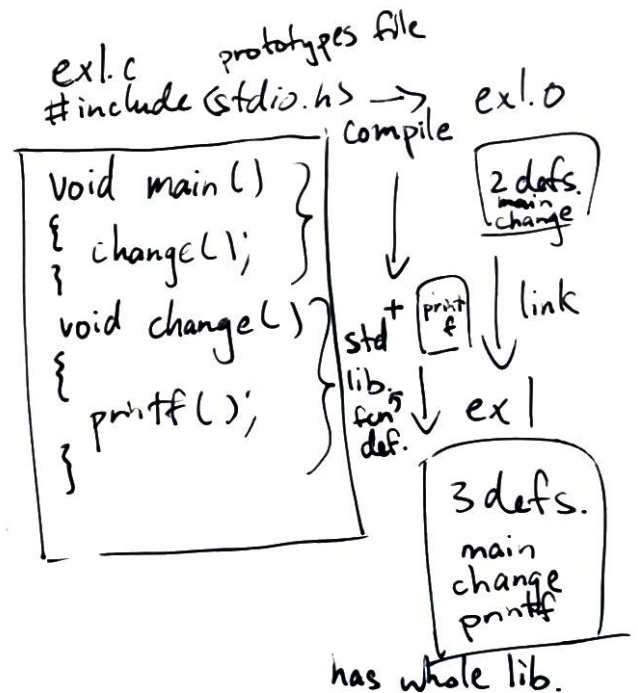 prototypes file
ex1.c
#include <stdio.h> → ex1.o
compile
void main()
{
change();
}
void change()
{
printf();
}
2 defs.
main
change
+
std
lib.
fcn
def.
print
f
link
ex1
3 defs.
main
change
printf
has whole lib.